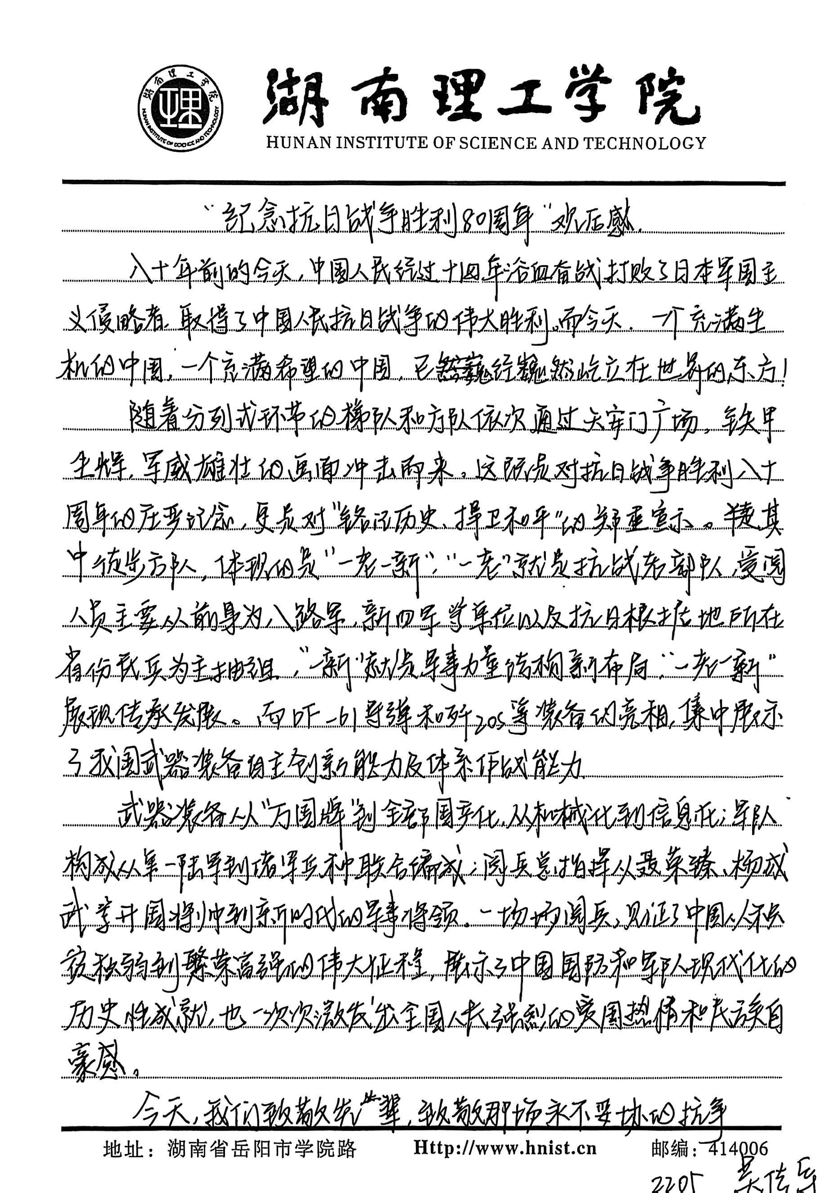 湖南理工学院
HUNAN INSTITUTE OF SCIENCE AND TECHNOLOGY
"纪念抗日战争胜利80周年"观后感.
八十年前的今天,中国人民经过十四年浴血奋战打败了日本军国主
义侵略者,取得了中国人民抗日战争的伟大胜利。而今天,一个充满生
机的中国,一个充满希望的中国,已经巍然屹立在世界的东方!
随着分列式环节的梯队和方队依次通过天安门广场,铁甲
生辉,军威雄壮的画面冲击而来。这既是对抗日战争胜利八十
周年的庄严纪念,更是对"铭记历史、捍卫和平"的郑重宣示。其
中徒步方队,体现的是"一老一新","一老"就是抗战老部队,受阅
人员主要从前身为八路军,新四军等单位以及抗日根据地所在
省份民兵为主抽组,"一新"就是军事力量结构新布局,"一老一新"
展现传承发展。而DF-61导弹和歼20S等装备的亮相,集中展示
了我国武器装备自主创新能力及体系作战能力
武器装备从"万国牌"到全部国产化,从机械化到信息化;军队
构成从单一陆军到诸军兵种联合编成;阅兵总指挥从聂荣臻、杨成
武等开国将帅到新时代的军事将领。一场场阅兵,见证了中国从积
贫积弱到繁荣富强的伟大征程,展示了中国国防和军队现代化的
历史性成就,也一次次激发出全国人民强烈的爱国热情和民族自
豪感。
今天,我们致敬先辈,致敬那场永不妥协的抗争
地址:湖南省岳阳市学院路 Http://www.hnist.cn 邮编:414006
2205 吴佳乐